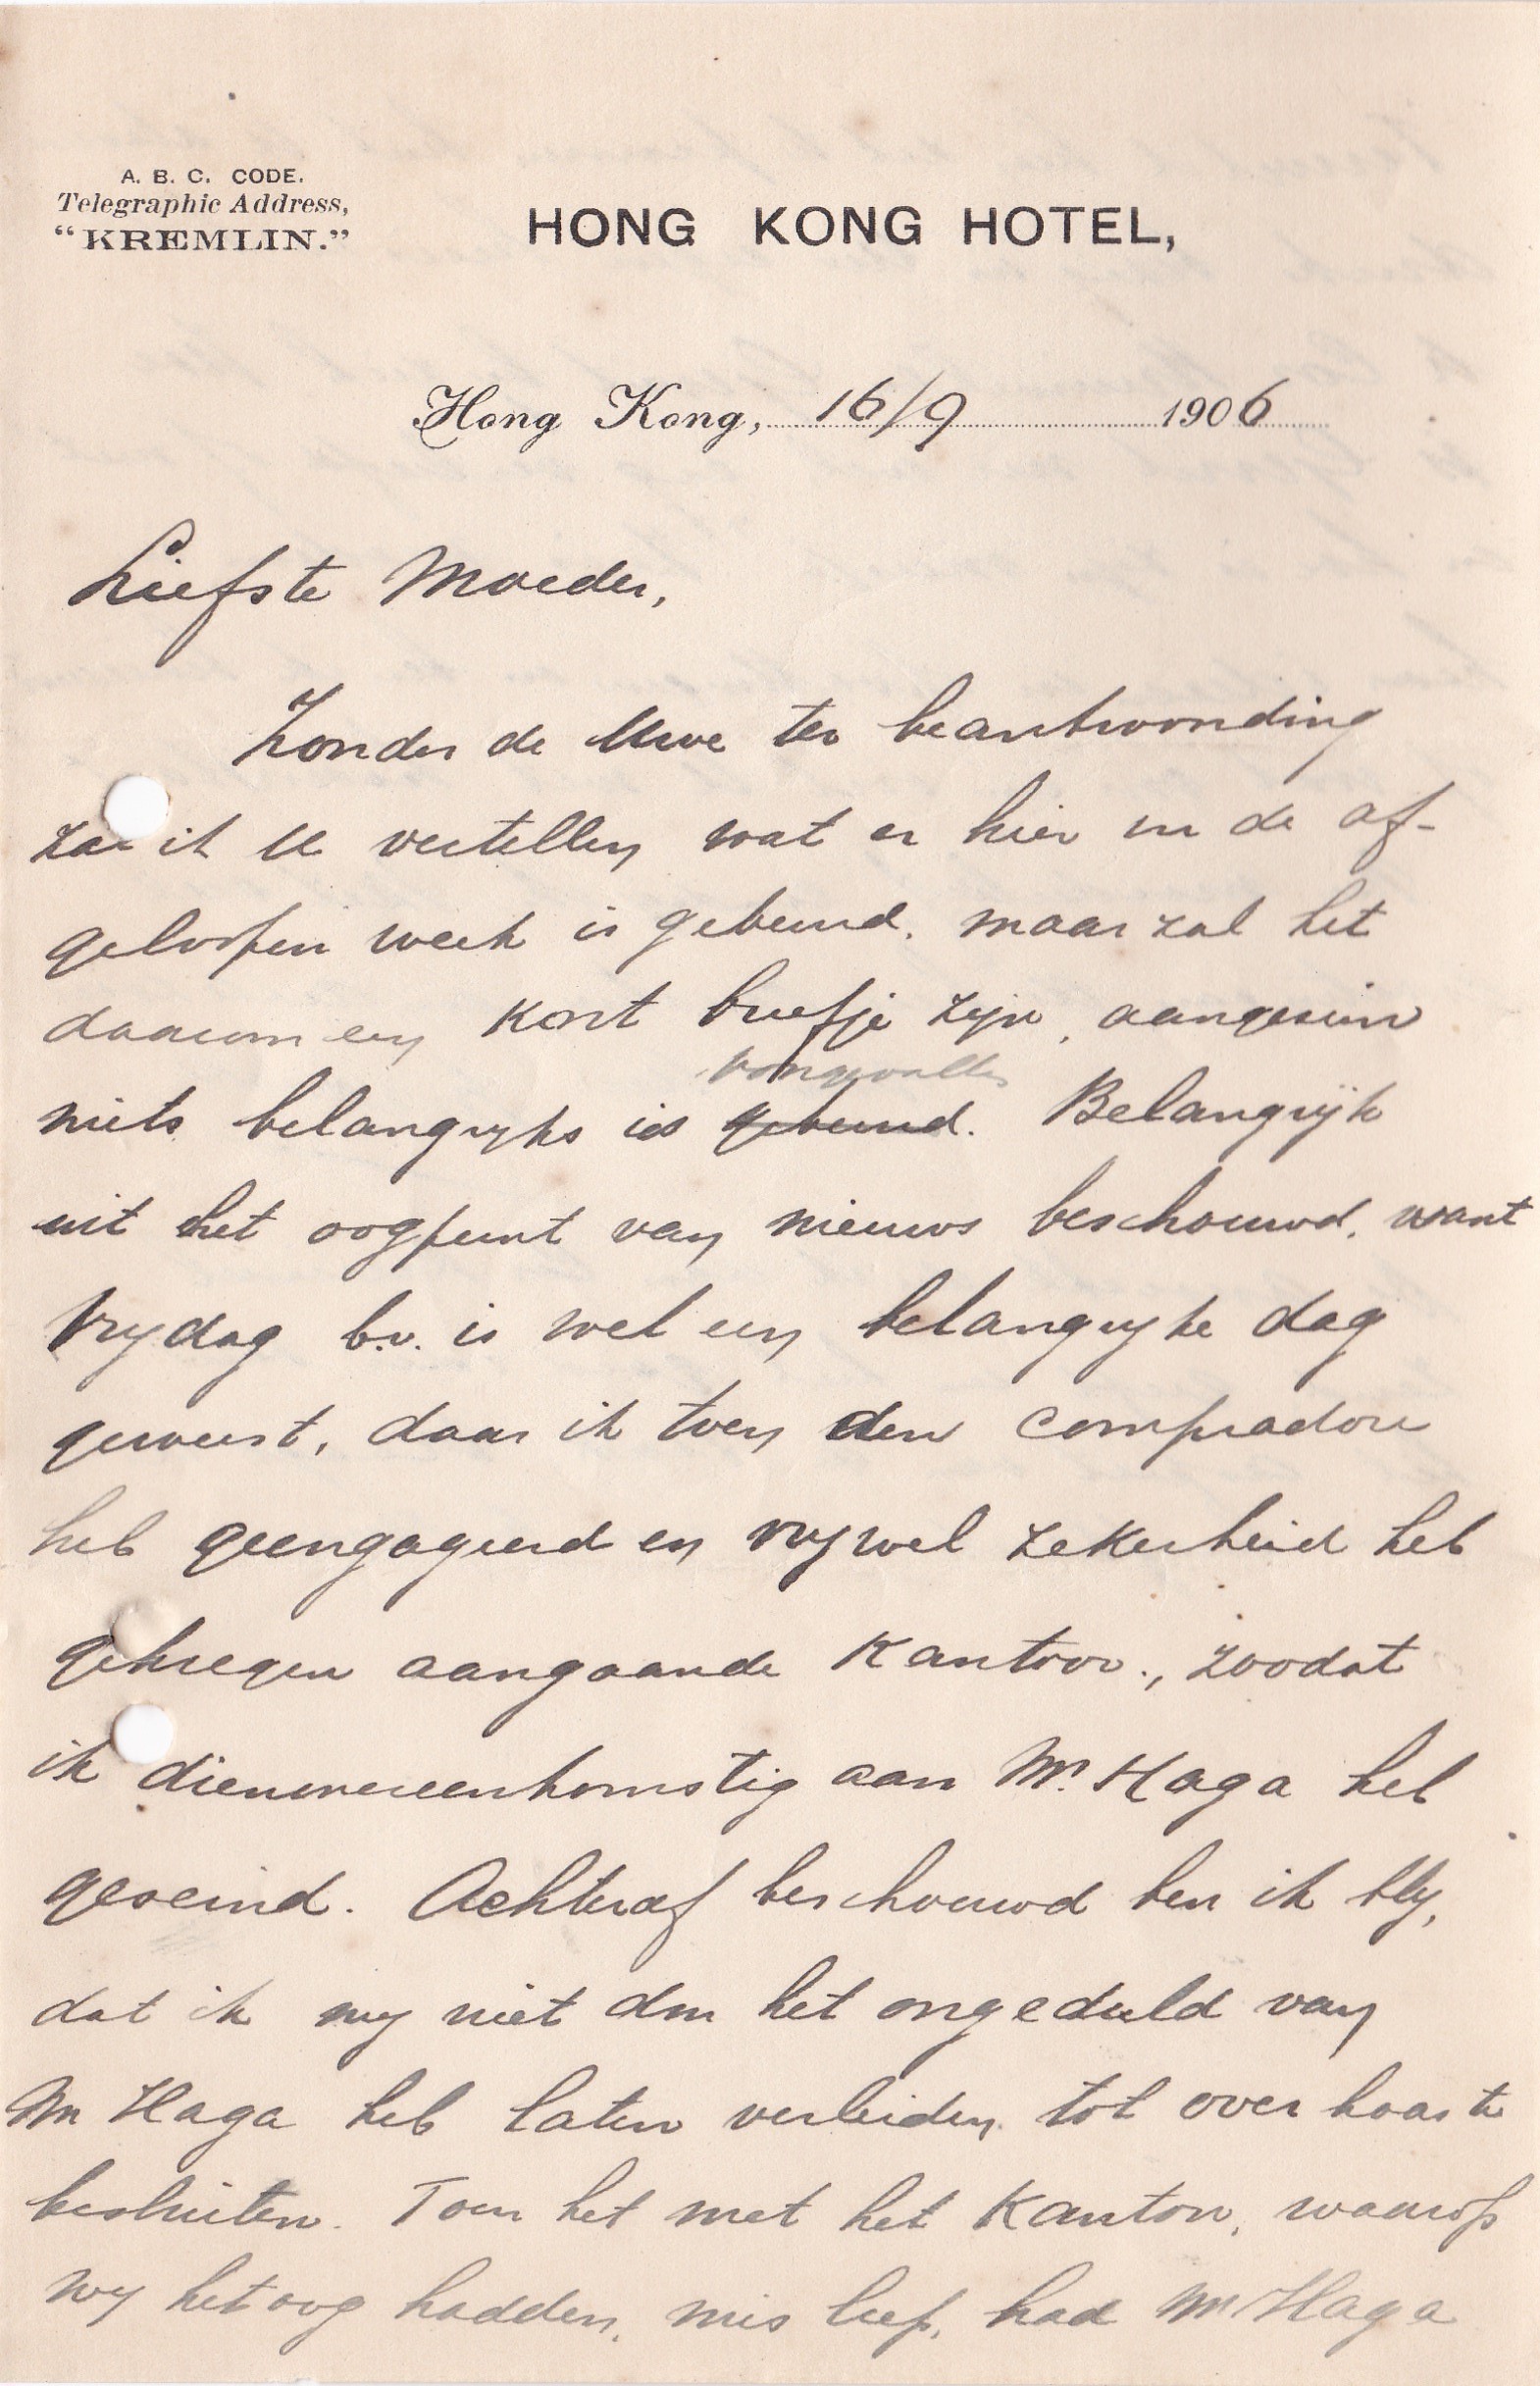 A. B. C. CODE.
Telegraphic Address,
"KREMLIN."
HONG KONG HOTEL,
Hong Kong, 16/9 1906
Liefste Moeder,
Zonder de Uwe ter beantwoording
zal ik U vertellen wat er hier in de af-
geloopen week is gebeurd. maar zal het
daarom een kort briefje zijn, aangezien
voorgevallen
niets belangrijks is gebeurd. Belangrijk
uit het oogpunt van nieuws beschouwd, want
Vrydag b.v. is wel een belangryke dag
geweest, daar ik toen den compradore
heb geengageerd en vrywel zekerheid heb
gekregen aangaande Kantoor., zoodat
ik dienovereenkomstig aan Mr. Haga heb
geseind. Achteraf beschouwd ben ik bly,
dat ik my niet door het ongeduld van
Mr Haga heb laten verleiden tot overhaaste
besluiten. Toen het met het Kantoor, waarop
wy het oog hadden, mis liep, had Mr Haga